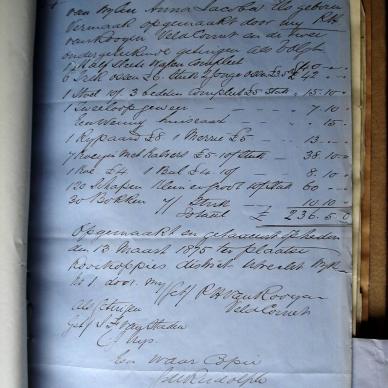 van wylen Anna Jacoba Els geboren
Vermaak opgemaakt door my R H
van Rooyen Veld Cornet en de twee
ondergetekende getuigen als volgt
1 Half Steels Wagen Compleet £40
6 Trek ossen £6 Stuk 2 Jonge ossen £3 Stuk 42
1 Stoel 10/ 3 bedden Compleet £5 Stuk 15.10
1 Tweeloop geweer 7.10
Een Weinig huisraad 15
1 Rypaard £8 1 Merrie £5 13
7 Koeyen Met Kalvers £5.10/ Stuk 38.10
1 Koe £4 1 Bul £4.10/ 8.10
120 Schapen Klein en groot 10/ Stuk 60
30 Bokken 7/ Stuk 10.10
Totaal £ 236.5.0
Opgemaakt en getaxeert op heden
den 13 Maart 1875 ter plaatse
Rooikoppies district Utrecht Wyk
No 1 door my
Get/ R H Van Rooyen
Veld Cornet
Als Getuigen
Get/ S J Van Staden
Een Waar Copie
Rudolph